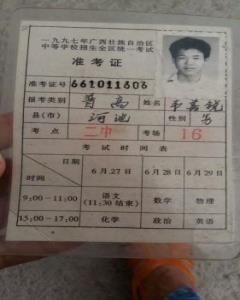 一九九七年广西壮族自治区
中等学校招生全区统一考试
准考证
准考证号 661011606
报考类别 普高 姓名 韦
县(市) 河池 性别 男
考点 二中 考场 16
考试时间表
日期 6月27日 6月28日 6月29日
时间
9:00-11:00 语文 (11:30结束) 数学 物理
15:00-17:00 化学 政治 英语